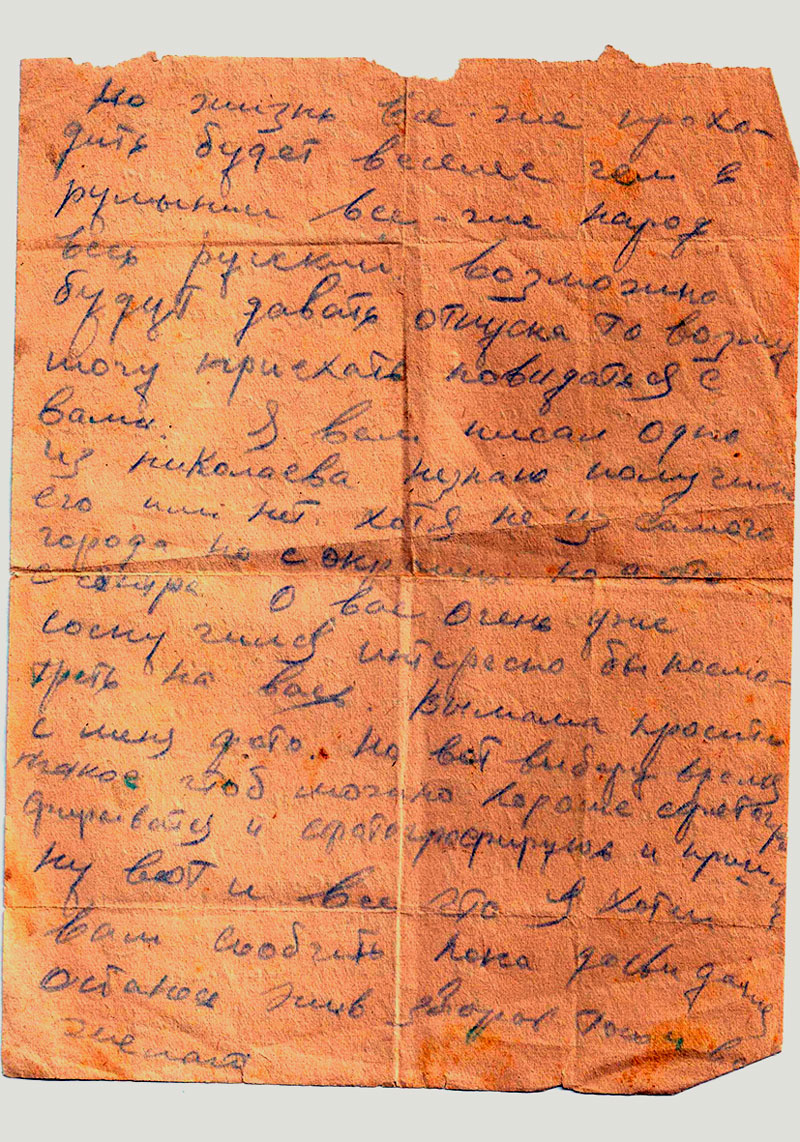 но жизнь все-же прохо-
дить будет веселее чем в
румынии все-же народ
весь руский. Возможно
будут давать отпуска то возмо
жочу приехать повидаться с
вами. Я вам писал одно
из николаева незнаю получили
его или нет. хотя не из самого
города но с окраины но это
О вас очень уже
соскучился интересно бы посмо-
треть на васъ. Вымама просите
с меня фото. но вот выберу время
такое чтоб можно хороше сфотогра
фироваться и сфотографируюсь и пришлю
ну вот и все что я хотел
вам сообчить пока досвидания
остаюсь жив здоров того и вам
желаю